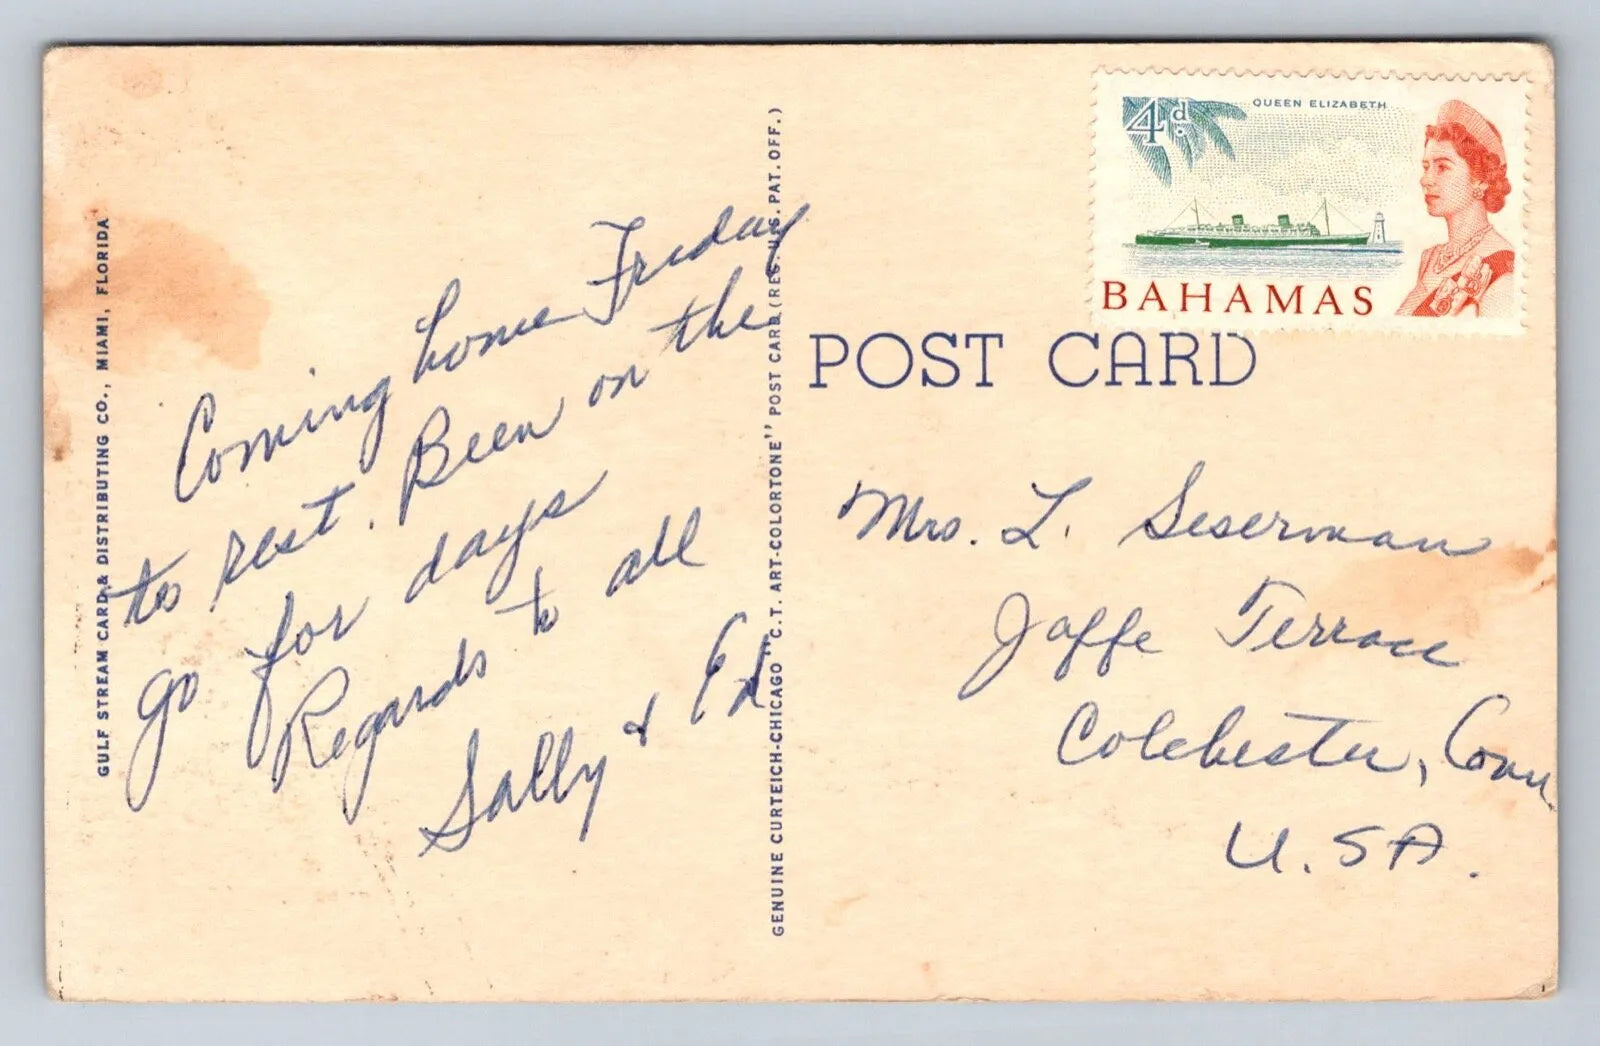 GULF STREAM CARD & DISTRIBUTING CO., MIAMI, FLORIDA
Coming home Friday
to rest. Been on the
go for days
Regards to all
Sally & Ed
GENUINE CURTEICH-CHICAGO "C.T. ART-COLORTONE" POST CARD (REG. U.S. PAT. OFF.)
4d.
QUEEN ELIZABETH
BAHAMAS
POST CARD
Mrs. L. Seserman
Jaffe Terrace
Colchester, Conn.
U.SA.